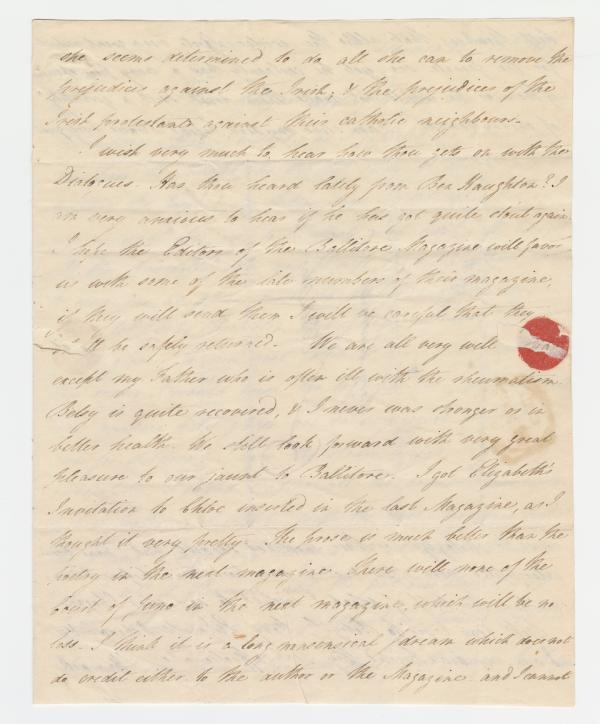 she seems determined to do all she can to remove the
prejudices against the Irish, & the prejudices of the
Irish protestants against their catholic neighbours.
I wish very much to hear how thou gets on with the
Dialogues. Has thou heard lately from Ben Haughton? I
am very anxious to hear if he has got quite stout again.
I hope the Editors of the Ballitore Magazine will favor
us with some of the late numbers of their magazine,
if they will send them I will be careful that they
be safely returned. We are all very well
except my Father who is often ill with the rheumatism
Betsy is quite recovered, & I never was stronger or in
better health. We still look forward with very great
pleasure to our jaunt to Ballitore. I got Elizabeth's
Invitation to Chloe inserted in the last Magazine, as I
thought it very pretty. The prose is much better than the
poetry in the next magazine. there will none of the
Court of Juno in the next magazine, which will be no
loss. I think it is a long nonsensical dream which does not
do credit either to the author or the Magazine and I cannot